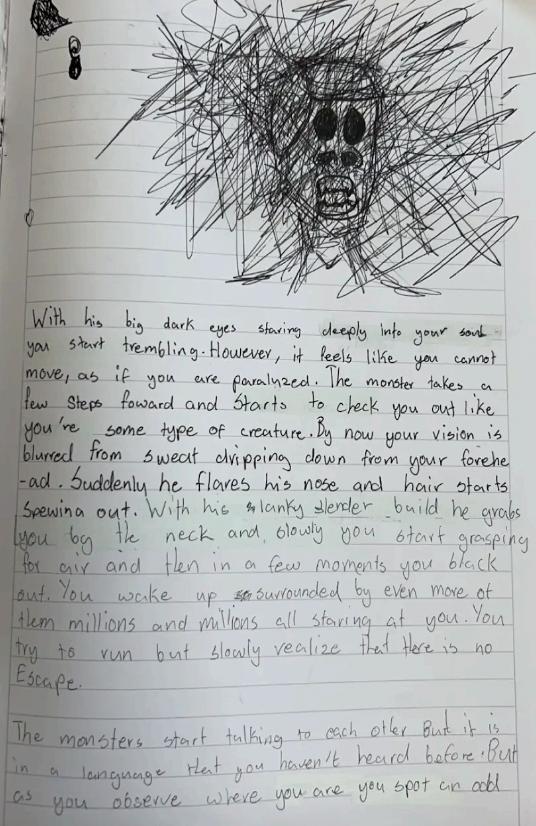 With his big dark eyes staring deeply into your soul
you start trembling. However, it feels like you cannot
move, as if you are paralyzed. The monster takes a
few Steps foward and Starts to check you out like
you're some type of creature. By now your vision is
blurred from sweat dripping down from your forehe
-ad. Suddenly he flares his nose and hair starts
Spewing out. With his lanky slender build he grabs
you by the neck and slowly you start grasping
for air and then in a few moments you black
out. You wake up surrounded by even more of
them millions and millions all staring at you. You
try to run but slowly realize that there is no
Escape.
The monsters start talking to each other But it is
in a language that you haven't heard before. But
as you observe where you are you spot an odd